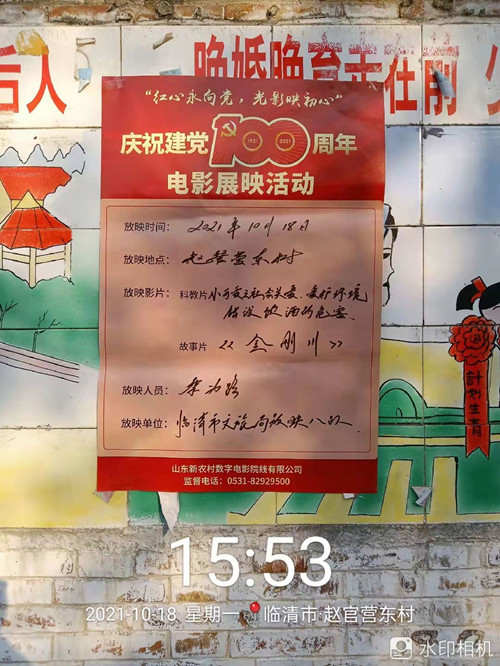 后人
晚婚晚育走在前
“红心永向党，光影映初心”
庆祝建党100周年
1921 2021
电影展映活动
放映时间： 2021年10月18日
放映地点： 赵官营东村
放映影片： 科教片 环境
饮酒的危害
故事片 《金刚川》
放映人员： 李
放映单位： 临清市文旅局放映八队
山东新农村数字电影院线有限公司
监督电话：0531-82929500
計划生育
15:53
2021-10-18 星期一 临清市·赵官营东村
水印相机